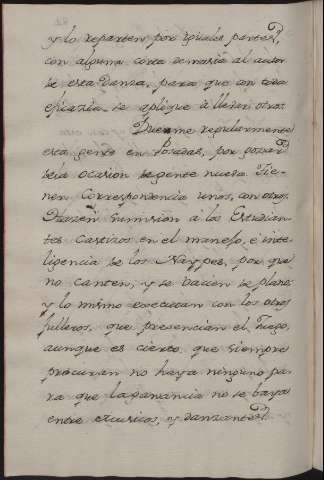 y lo reparten por iguales partes,
con alguna corta demasia al autor
de esta Danza, para que con toda
eficazia se aplique à llevar otros.
Duerme regularmente
esta gente en Posadas, por gozar
de la ocasion de gente nueva. Tie-
nen Correspondencia unos, con otros.
Hazen sumision a los Estudian-
tes Castizos en el manejo, e inte-
ligencia de los Naypes, por que
no canten, y se baucen de plano
y lo mismo executan con los otros
fulleros, que presencian el Juego,
aunque es cierto, que siempre
procuran no haya ninguno pa-
ra que la ganancia no se baya
entre curiosos, y danzantes.